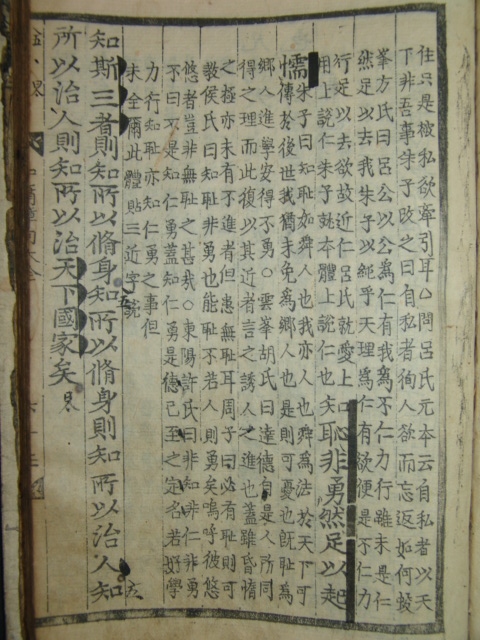 住只是被私欲牽引耳○問呂氏元本云自私者以天
下非吾事朱子改之曰自私者徇人欲而忘返如何
峯方氏曰呂公以公爲仁有我爲不仁力行雖未是仁
然足以去我朱子以純乎天理爲仁有欲便是不仁力
行足以去欲故近仁呂氏就愛上
用上說仁朱子就本體上說仁也
知恥非勇然足以起
懦
朱子曰知恥如舜人也我亦人也舜爲法於天下可
傳於後世我猶未免爲鄉人也是則可憂也旣恥爲
鄉人進學安得不勇○雲峯胡氏曰達德自是人所同
得之理而此復以其近者言之誘人之進也蓋雖昏惰
之極亦未有不進者但患無恥耳周子曰必有恥則可
敎侯氏曰知恥非勇也能恥不若人則勇矣嗚呼彼悠
悠者豈非無恥之甚哉○東陽許氏曰非知非仁非勇
不曰不是知仁勇蓋知仁勇是德已至之定名若好學
力行知恥亦知仁勇之事但
未全爾此體貼三近字說
知斯三者則知所以脩身知所以脩身則知所以治人知
所以治人則知所以治天下國家矣